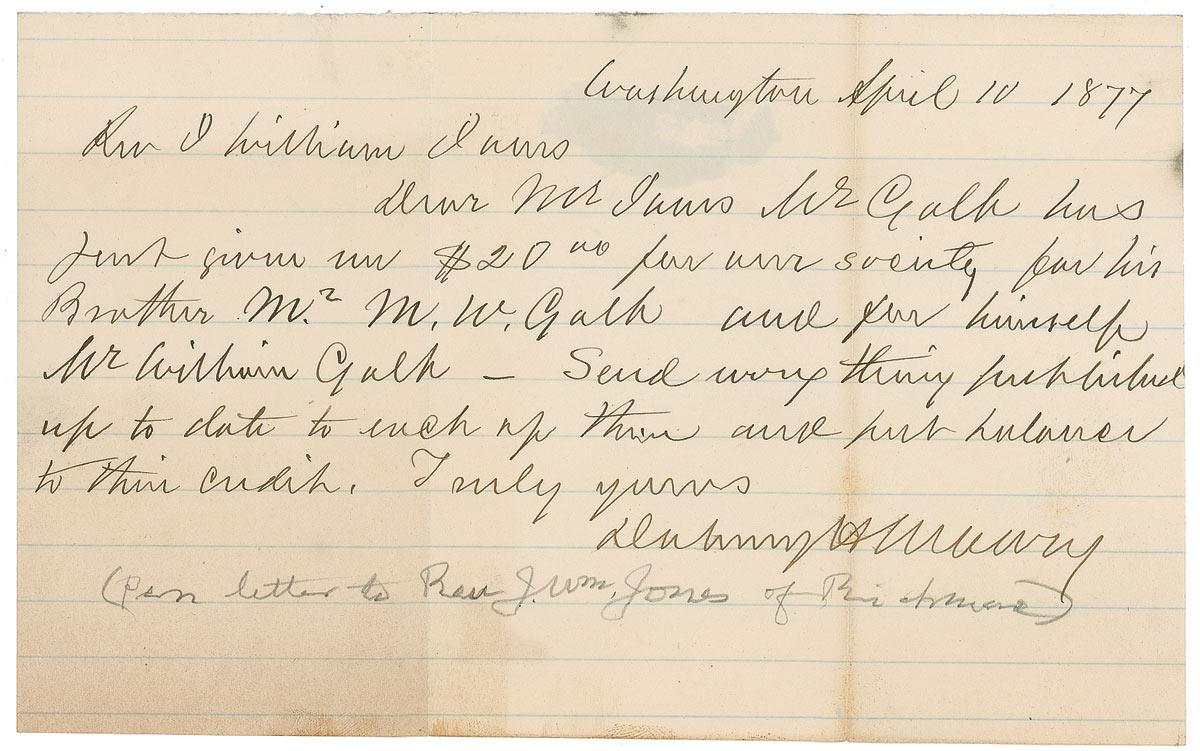 Washington April 10 1877
Rev J William Jones
Dear Mr Jones Mr Galt has
just given me $20 00 for our society for his
Brother Mr M. W. Galt and for himself
Mr William Galt – Send every thing published
up to date to each of them and put balance
to their credit. Truly yours
Dabney H Maury
(Pen letter to Rev J. Wm. Jones of Richmond)